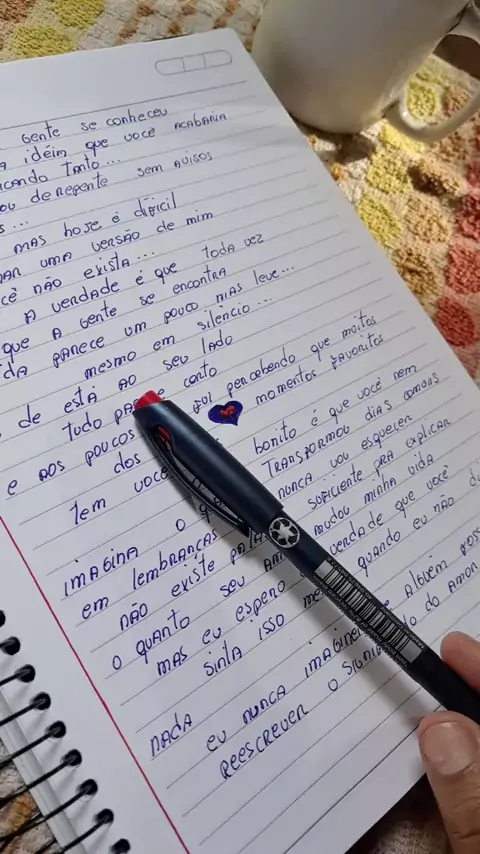 gente se conheceu
idéia que você acabaria
ficando tanto...
de repente sem avisos
mas hoje é difícil
uma versão de mim
não exista...
A verdade é que toda vez
que A gente se encontra
parece um pouco mais leve...
mesmo em silêncio...
de está ao seu lado
tudo conto
e aos poucos fui percebendo que muitos
dos momentos favoritos
tem você
bonito é que você nem
imagina
transformou dias comuns
em lembranças nunca vou esquecer
não existe suficiente pra explicar
o quanto seu mudou minha vida
mas eu espero verdade que você
sinta isso quando eu não
NADA
eu nunca imaginei alguém
REESCREVER o do amor